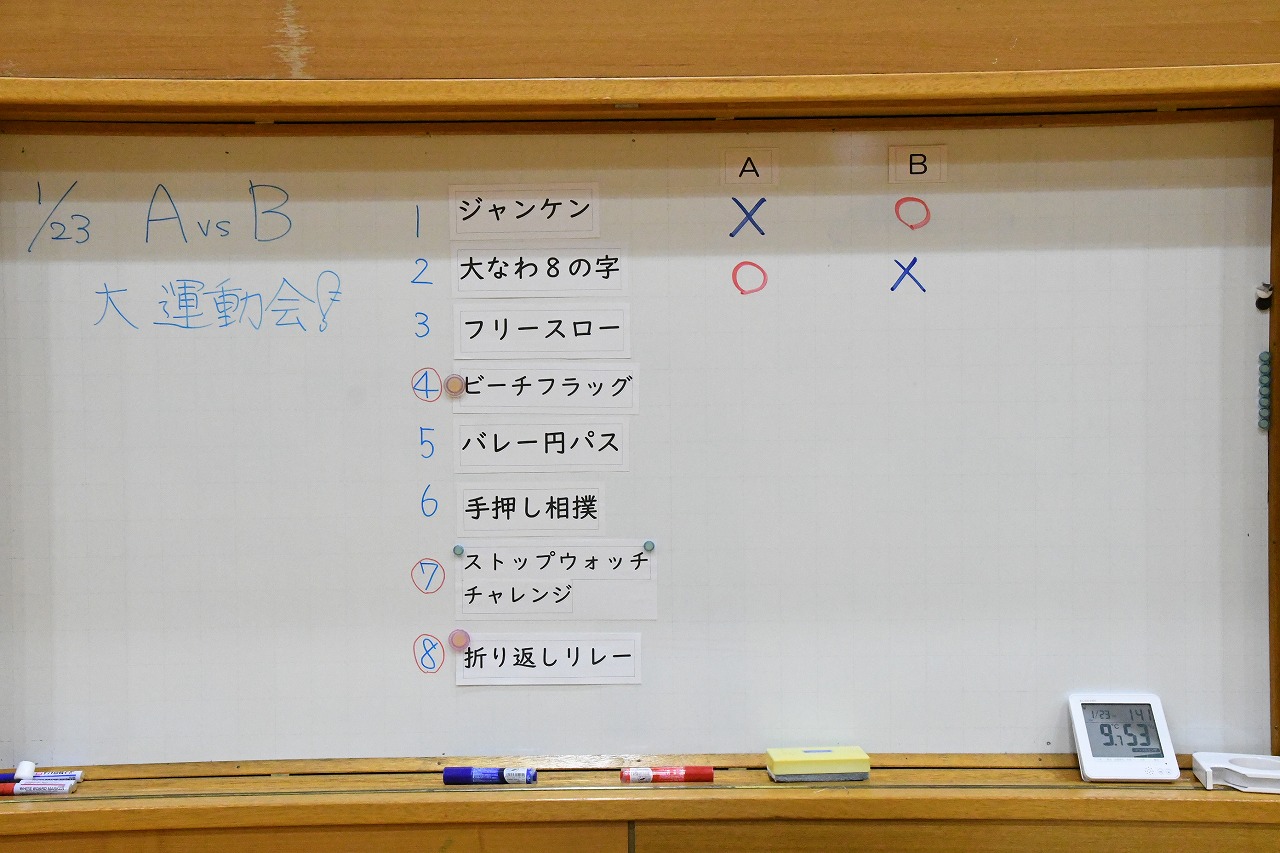 1/23 A vs B
大運動会!
A B
1 ジャンケン X ○
2 大なわ8の字 ○ X
3 フリースロー
④ ビーチフラッグ
5 バレー円パス
6 手押し相撲
⑦ ストップウォッチ
チャレンジ
⑧ 折り返しリレー
1/23 141
9:53